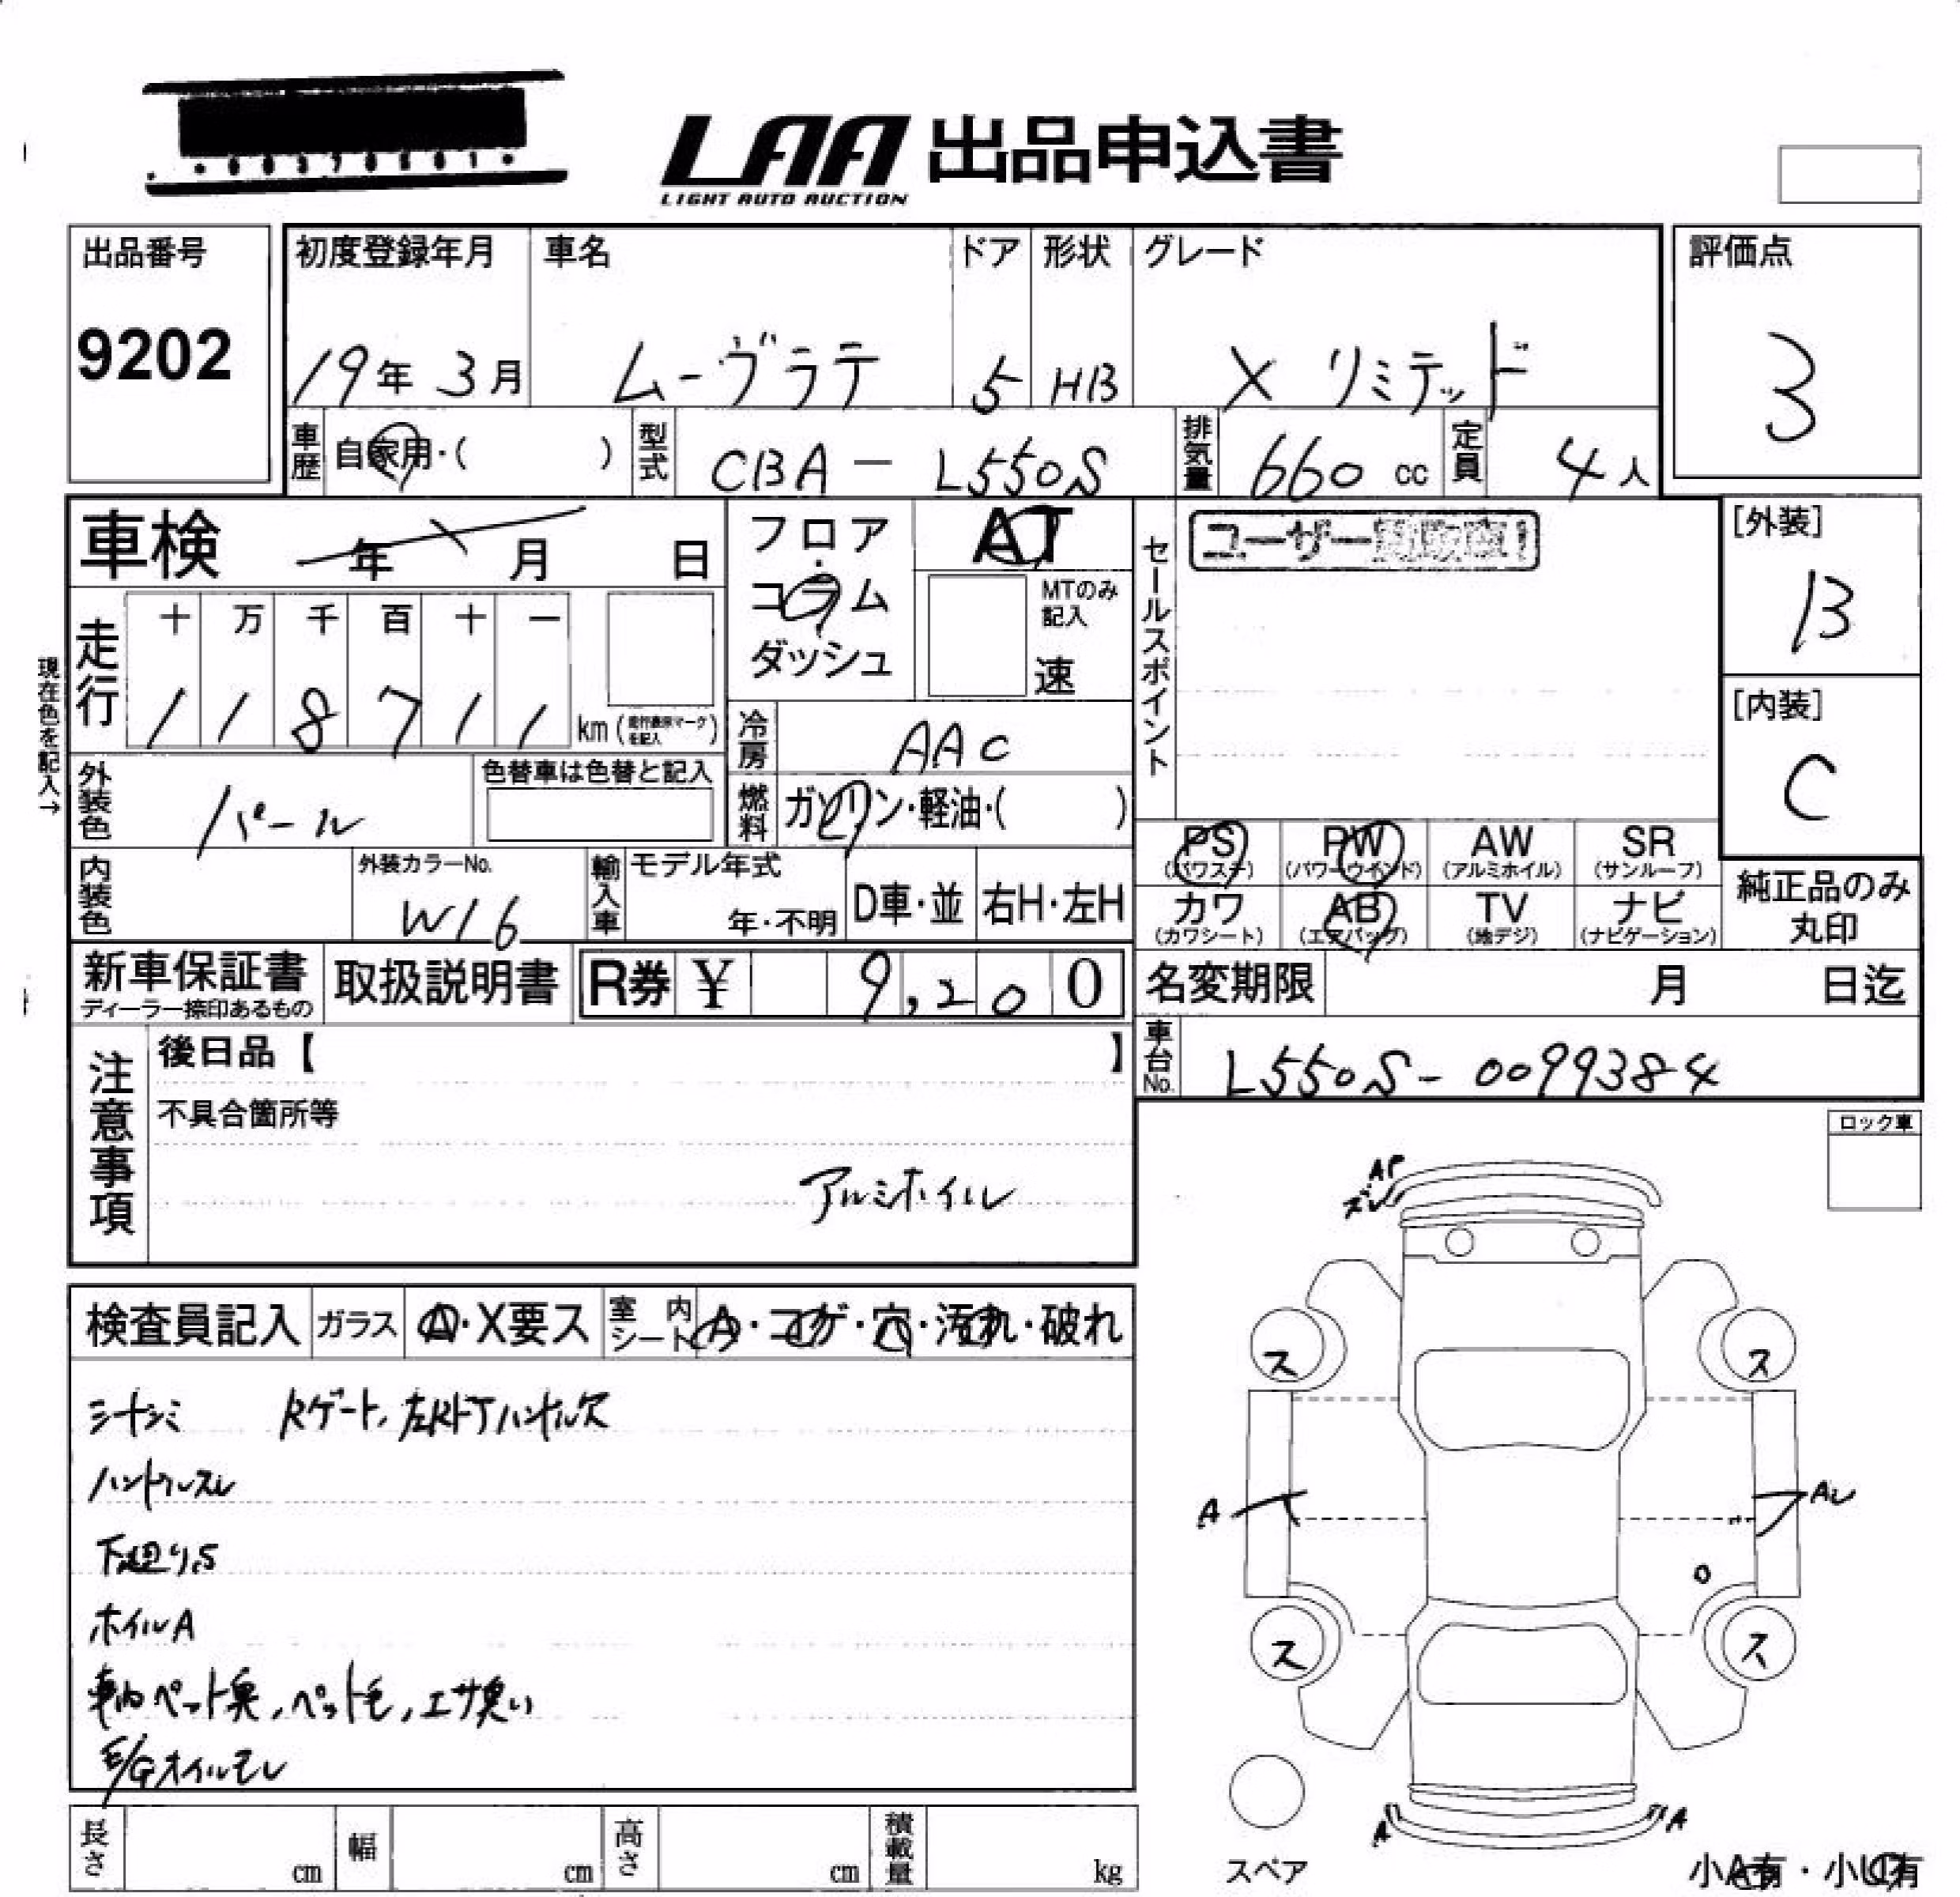 LAA 出品申込書
LIGHT AUTO AUCTION
出品番号
9202
初度登録年月
19年 3月
車名
ムーヴラテ
ドア
5
形状
HB
グレード
X リミテッド
評価点
3
車歴
自家用・( )
型式
CBA - L550S
排気量
660 cc
定員
4人
車検 年 月 日
フロア
コラム
ダッシュ
AT
MTのみ
記入
速
セールスポイント
ユーザー
[外装]
B
[内装]
C
現在色を記入→
走行
十 万 千 百 十 一
1 1 8 7 1 1 km (走行表示マークを記入)
冷房
AAC
外装色
パール
色替車は色替と記入
燃料
ガソリン・軽油・( )
PS
(パワステ)
PW
(パワーウインド)
AW
(アルミホイル)
SR
(サンルーフ)
カワ
(カワシート)
AB
(エアバッグ)
TV
(地デジ)
ナビ
(ナビゲーション)
純正品のみ
丸印
内装色
外装カラーNo.
W16
輸入車
モデル年式
年・不明
D車・並
右H・左H
新車保証書
ディーラー捺印あるもの
取扱説明書
R券 ¥ 9,200
名変期限 月 日迄
車台No.
L550S-0099384
注意事項
後日品【 】
不具合箇所等
アルミホイル
ロック車
検査員記入
ガラス
A・X要ス
室内シート
A・コゲ・穴・汚れ・破れ
Rゲート、左Rドアハンドル欠
ハンドルスレ
下廻りS
ホイルA
車内ペット臭,ペット毛,エサ臭い
E/Gオイルモレ
AP
ズレ
ス
ス
A
ス
ス
A
A
スペア
小A有・小U有
長さ cm
幅 cm
高さ cm
積載量 kg